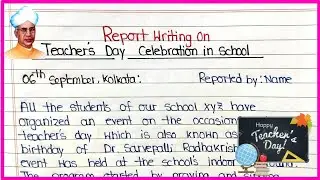 Report Writing On
Teacher's Day Celebration in School
06th September, Kolkata:
Reported by: Name
All the students of our school xyz have
organized an event on the occasion
teacher's day which is also known as
birthday of Dr. Sarvepalli Radhakrish
event has held at the school's indoor
The program started by praying and
Happy
Teacher's
Day!